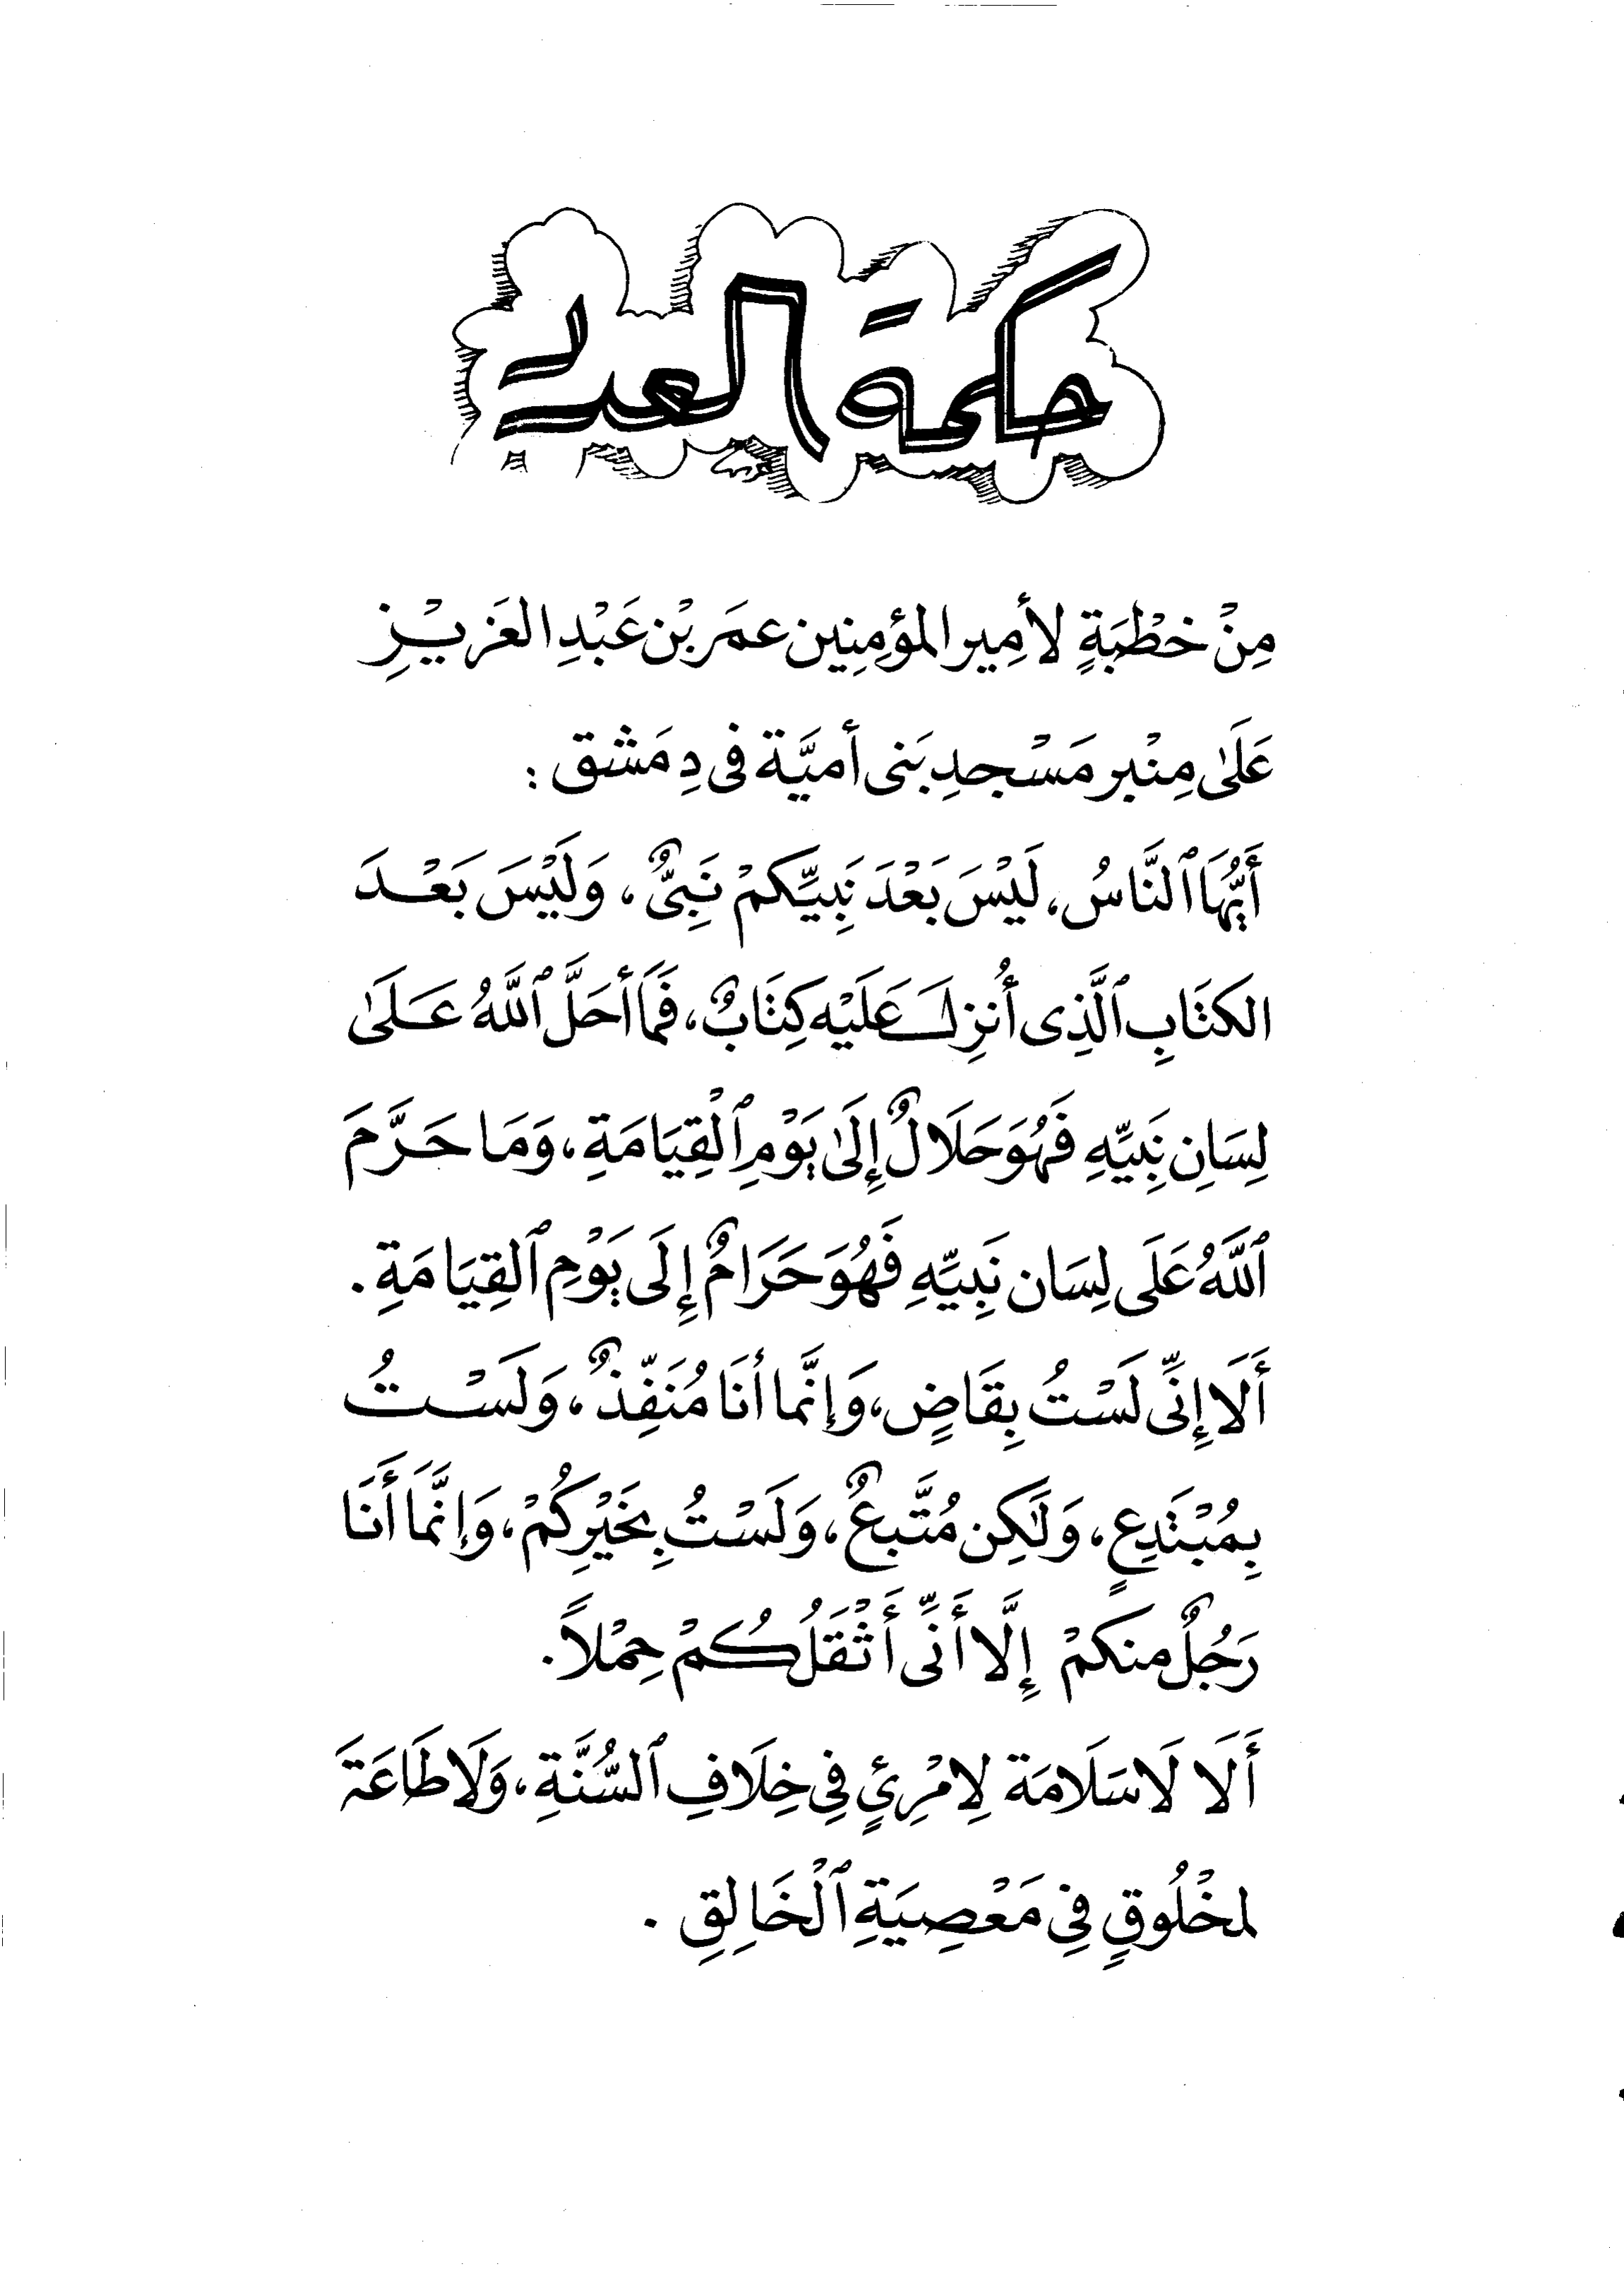 حكمة العدد
مِنْ خطْبَةٍ لأمِير المؤمِنِين عمَر بْن عَبْدِ العَزيْزِ
عَلَىٰ مِنْبر مَسْجدِ بَنى أميَّة فى دِمَشق :
أَيُّهَا ٱلنَّاسُ، لَيْسَ بَعْدَ نَبِيِّكمْ نَبِىٌّ، وَلَيْسَ بَعْدَ
الكتَابِ ٱلَّذِى أُنزِلَ عَلَيْه كِتَابٌ، فَمَا أحَلَّ ٱللَّهُ عَلَىٰ
لِسَانِ نَبِيِّهِ فَهُوَ حَلَالٌ إِلَىٰ يَوْمِ ٱلْقِيَامَةِ، وَمَا حَرَّمَ
ٱللَّهُ عَلَى لِسَان نَبِيِّهِ فَهُوَ حَرَامٌ إِلَى يَوْمِ ٱلقِيَامَةِ.
أَلَا إِنِّى لَسْتُ بِقَاضٍ، وَإنَّما أنَا مُنَفِّذٌ، وَلَسْتُ
بِمُبْتَدِعٍ، وَلَٰكِن مُتَّبعٌ، وَلَسْتُ بِخَيْرِكُمْ، وَإنَّمَا أَنَا
رَجُلٌ منكمْ إِلَّا أَنِّى أَثْقَلُكُمْ حِمْلاً.
أَلَا لَا سَلَامَة لِامْرِئٍ فِي خِلَافِ ٱلسُّنَّةِ، وَلَا طَاعَةَ
لمخْلُوقٍ فِي مَعْصِيَةِ ٱلْخَالِقِ .